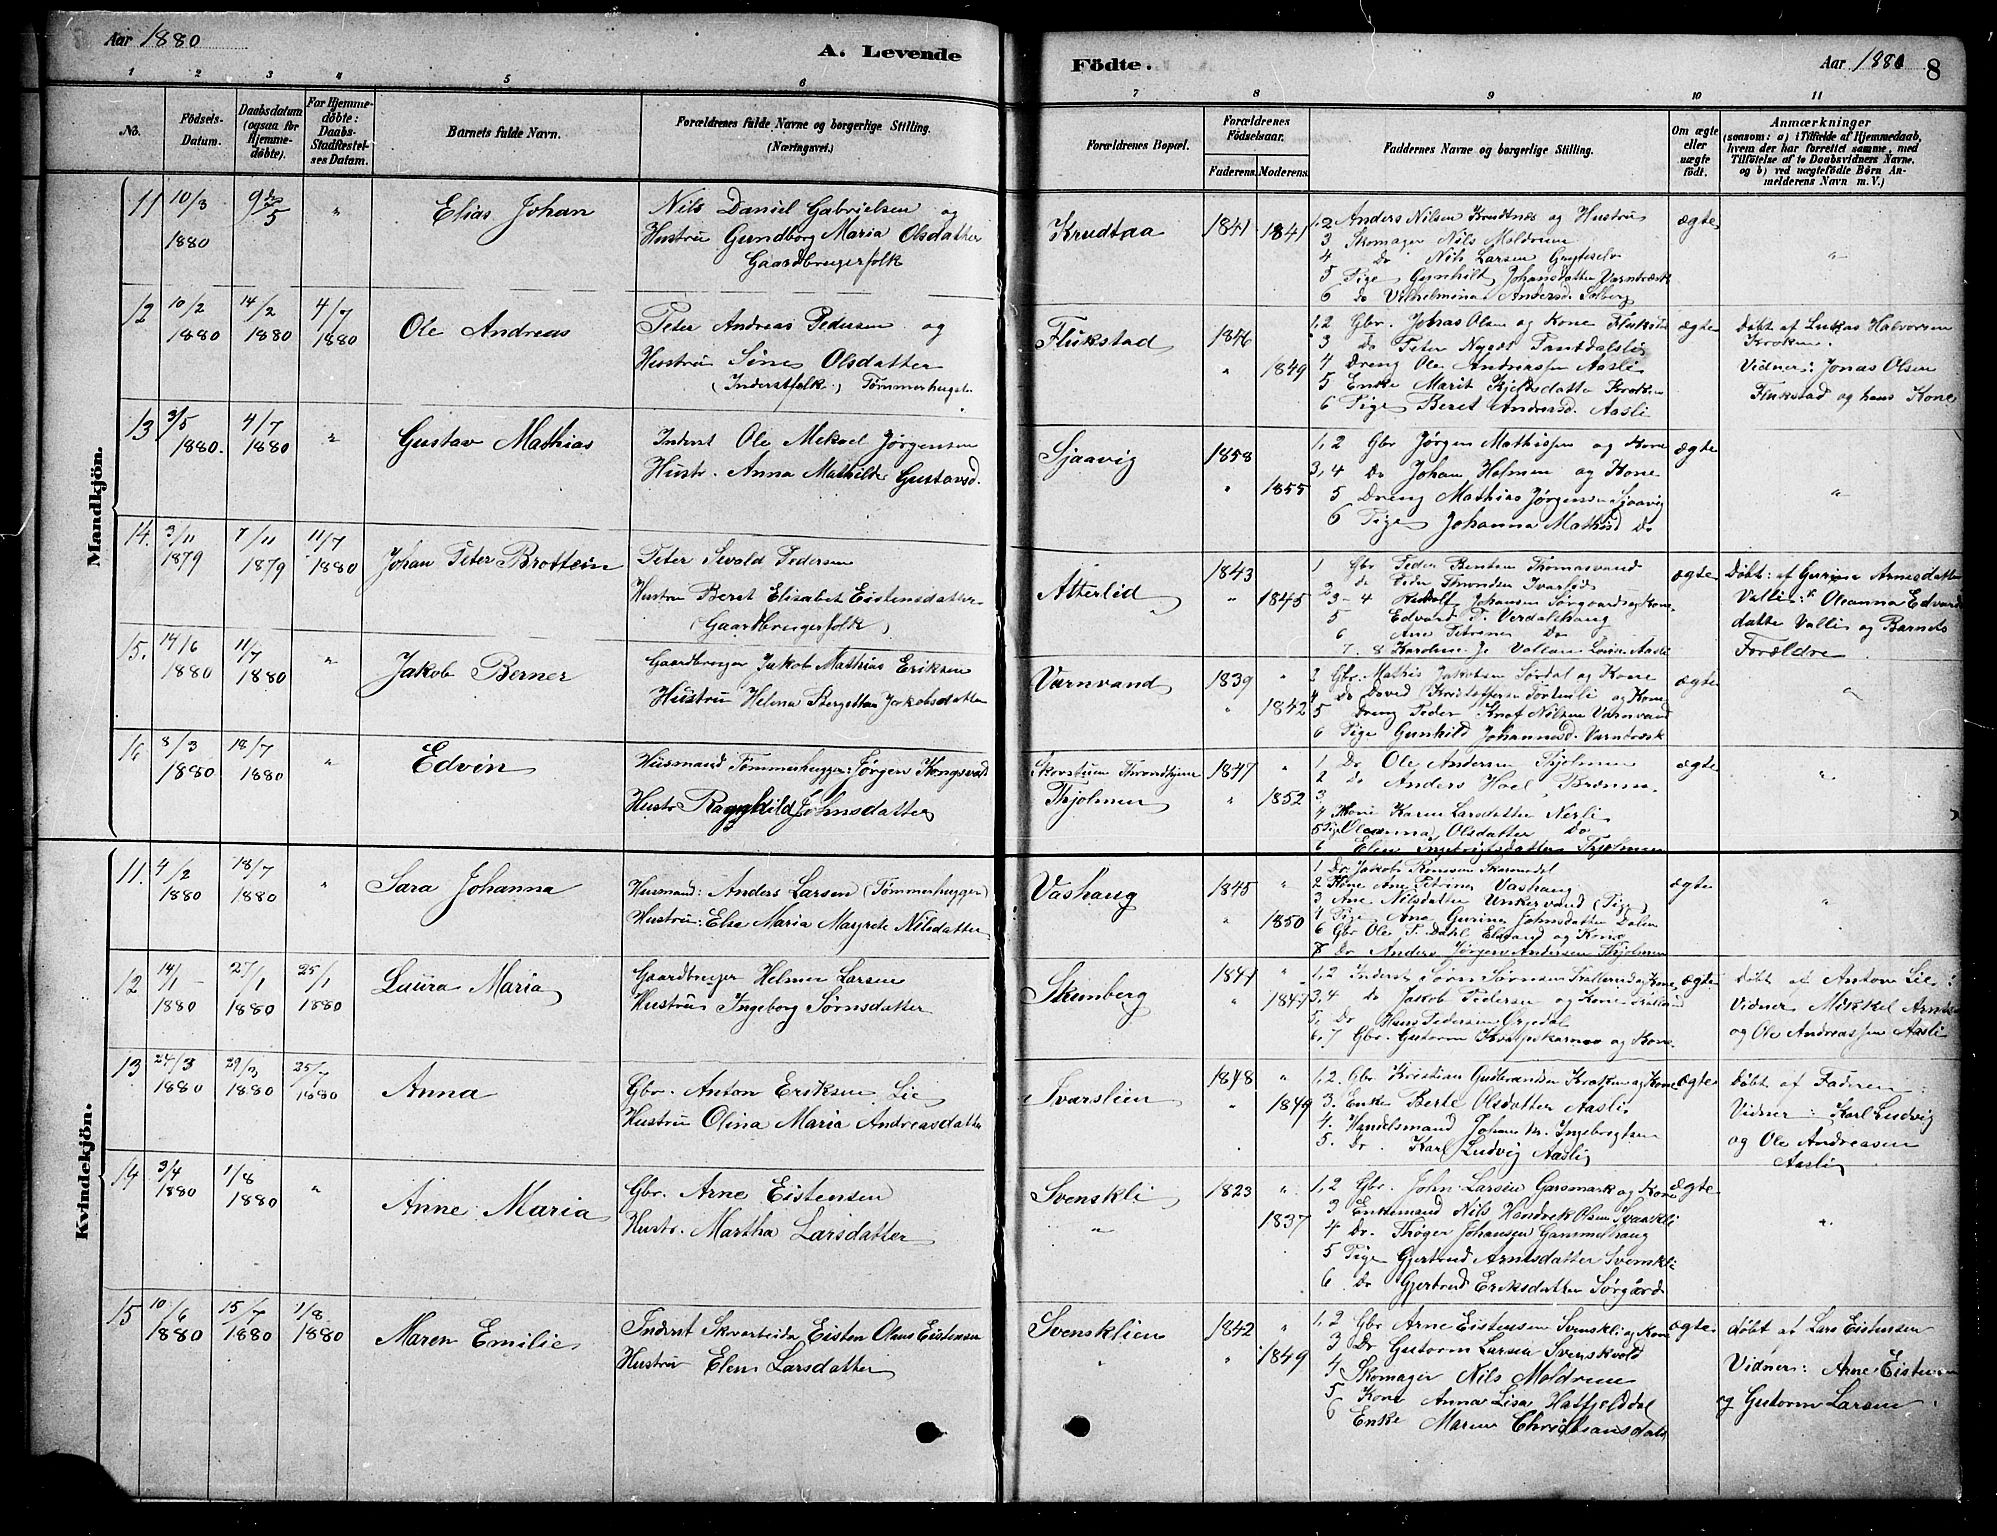 Aar 1880
A. Levende
Födte.
Aar 1880
8
1 2 3 4 5 6 7 8 9 10 11
No.
Födsels-Datum.
Daabsdatum (ogsaa for Hjemme-døbte).
For Hjemme-døbte: Daabs-Stadfæstel-ses Datum.
Barnets fulde Navn.
Forældrenes fulde Navne og borgerlige Stilling.
(Næringsvei.)
Forældrenes Bopæl.
Forældrenes Födselsaar.
Faderens. Moderens.
Faddernes Navne og borgerlige Stilling.
Om ægte eller uægte födt.
Anmærkninger
(saasom: a) i Tilfælde af Hjemmedaab,
hvem der har forrettet samme, med
Tilföielse af to Daabsvidners Navne.
og b) ved uægtefödte Börn An-
melderens Navn m. V.)
Mandkjön.
11 10/3 1880 9de/5 "
Elias Johan
Nils Daniel Gabrielsen og
Hustru Gundborg Maria Olsdatter
Gaardbrugerfolk
Krudtaa 1841 1841
1,2 Anders Nilsen Krudtnæs og Hustru
3 Skomager Nils Moldrem
4 Do Nils Larsen
5 Pige Gunhild Johansdatter
6 do Vilhelmina Andersd. Solberg
ægte "
12 10/2 1880 14/2 1880 4/7 1880
Ole Andreas
Peter Andreas Pedersen og
Hustru Sine Olsdatter
(Inderstfolk) Tømmerhugst
Flukstad 1846 " 1849
1,2 Gbr. Johas Olsen og Kone Flukstad
3 Do Peter
4 Dreng Ole Andreassen Aasli
5 Enke Marit Kjeldsdatter Kroken
6 Pige Beret Andreasd. Aasli
ægte
Døbt af Lukas Halvorsen
Kroken.
Vidner: Jonas Olsen
Flukstad og hans Kone
13 3/5 1880. 4/7 1880 "
Gustav Mathias
Inderst Ole Mekael Jørgensen
Hustr. Anna Mathilde Gustavsd.
Sjaavig 1858 " 1855
1,2 Gbr Jørgen Mathissen og Kone
3,4 Do Johan Holmen og Kone
5 Dreng Mathias Jørgensen Sjaavig
6 Pige Johanna Mathisd Do
ægte "
14. 3/11 1879 7/11 1879 11/7 1880
Johan Peter Brottein
Peter Sivald Pedersen
Hustru Beret Elisabet Eistensdatter
(Gaardbrugerfolk)
Atterlid 1843 " 1845
1 Gbr Peder Bentsen Thomasvand
2 do Peder Throndsen Ivarlid
3-4 Johansen Sørgaard og Kone
5 Edvard P. Verdalshaug
6 Ane Petrine Do
7. 8
ægte
Døbt: af Gurina Arnesdatter
Valli: Oleanna Edvards
datte Valli og Barnets
Forældre
15. 14/6 1880 11/7 1880 "
Jakob Berner
Gaardbruger Jakob Mathias Eriksen
Hustru Helena Bergitta Jakobsdatter
Varnvand 1839 " 1842
2 Gbr. Mathis Jakobsen Sørdal og Kone
4 Do David Kristoffersen og Kone
5 Dreng Peder Knof Nilsen Varnvand
6 Pige Gunhild Johannesd.
ægte "
16 8/3 1880 18/7 1880 "
Edvin
Husmand Tømmerhugger: Jørgen
Hustr Ragnhild Johnsdatter
Thjolmen 1847 " 1852
1 Do Ole Andersen Thjolmen
2 Do Anders Hoel
3
4 Kone Karen Larsdatter Nerli
5 Pige Oleanna Olsdatter Do
6 Elen Ingebrigtsdatter Thjolmen
ægte "
Kvindekjön.
11. 4/2 1880 18/7 1880 "
Sara Johanna
Husmand: Anders Larsen (Tømmerhugger)
Hustru: Elsa Maria Margrete Nilsdatter
Vashaug 1845 " 1850
1 Do Jakob
2 Kone Ane Petrina Vashaug
3 Ane Nilsdatter Unkervand (Pige)
4 Pige Ana Gurine Johnsdatter Dalen
6 Gbr Ole P. Dahl og Kone
8 Do Anders Jørgens Andersen Thjolmen
ægte "
12 14/1 1880 27/1 1880 25/1 1880
Laura Maria
Gaardbruger Helmer Larsen
Hustru Ingeborg Sørnsdatter
Skimberg 1847 " 1847
1,2 Inderst Sørn Sørnsen og Kone
3,4 do Jakob Pedersen og Kone
5. Do Hans Pedersen
6,7 Gbr. Gutorm og Kone
ægte
Døbt af Anton Lie:
Vidner Mikkel Arntsen
og Ole Andreassen Aasli
13 24/3 1880 29/3 1880 25/7 1880
Anna
Gbr. Anton Eriksen Lie
Hustru Olina Maria Andreasdatter
Svarslien 1848 " 1849
1,2. Gbr Kristian Gudbrandsen Kroken og Kone
3. Enke Berte Olsdatter Aasli
4. Handelsmand Johan Kr. Ingebrogtsen
5. Do Karl Ludvig Aasli
ægte
Døbt af Fadren:
Vidner: Karl Ludvig
og Ole Andreasen
Aasli
14 3/4 1880 1/8 1880 "
Anne Maria
Gbr. Arne Eistensen
Hustr. Martha Larsdatter
Svenskli " 1823 " 1837
1,2 Gbr. John Larsen Garsmark og Kone
3 Enkemand Nils Hendrek Olsen Svenskli
4 Do. Thøger Johansen Gammelhaug
5 Pige Gjertrud Arntsdatter Svenskli
6 Do Gjertrud Eriksdatter Sørgård
ægte "
15 10/6 1880 15/7 1880 1/8 1880
Maren Emilie
Inderst Skoarbeide Eisten Olaus Eistensen
Hustru Elen Larsdatter
Svensklien " 1842 " 1849
1,2 Gbr Arne Eistensen Svenskli og Kone
3 Do Gutorm Larsen Svenskvold
4 Skomager Nils Moldrem
5 Kone Anna Lisa Hatfjelddal
6 Enke Maren Christiansdatr
ægte
døbt af Lars Eistensen
Vidner: Arne Eistensen
og Gutorm Larsen.